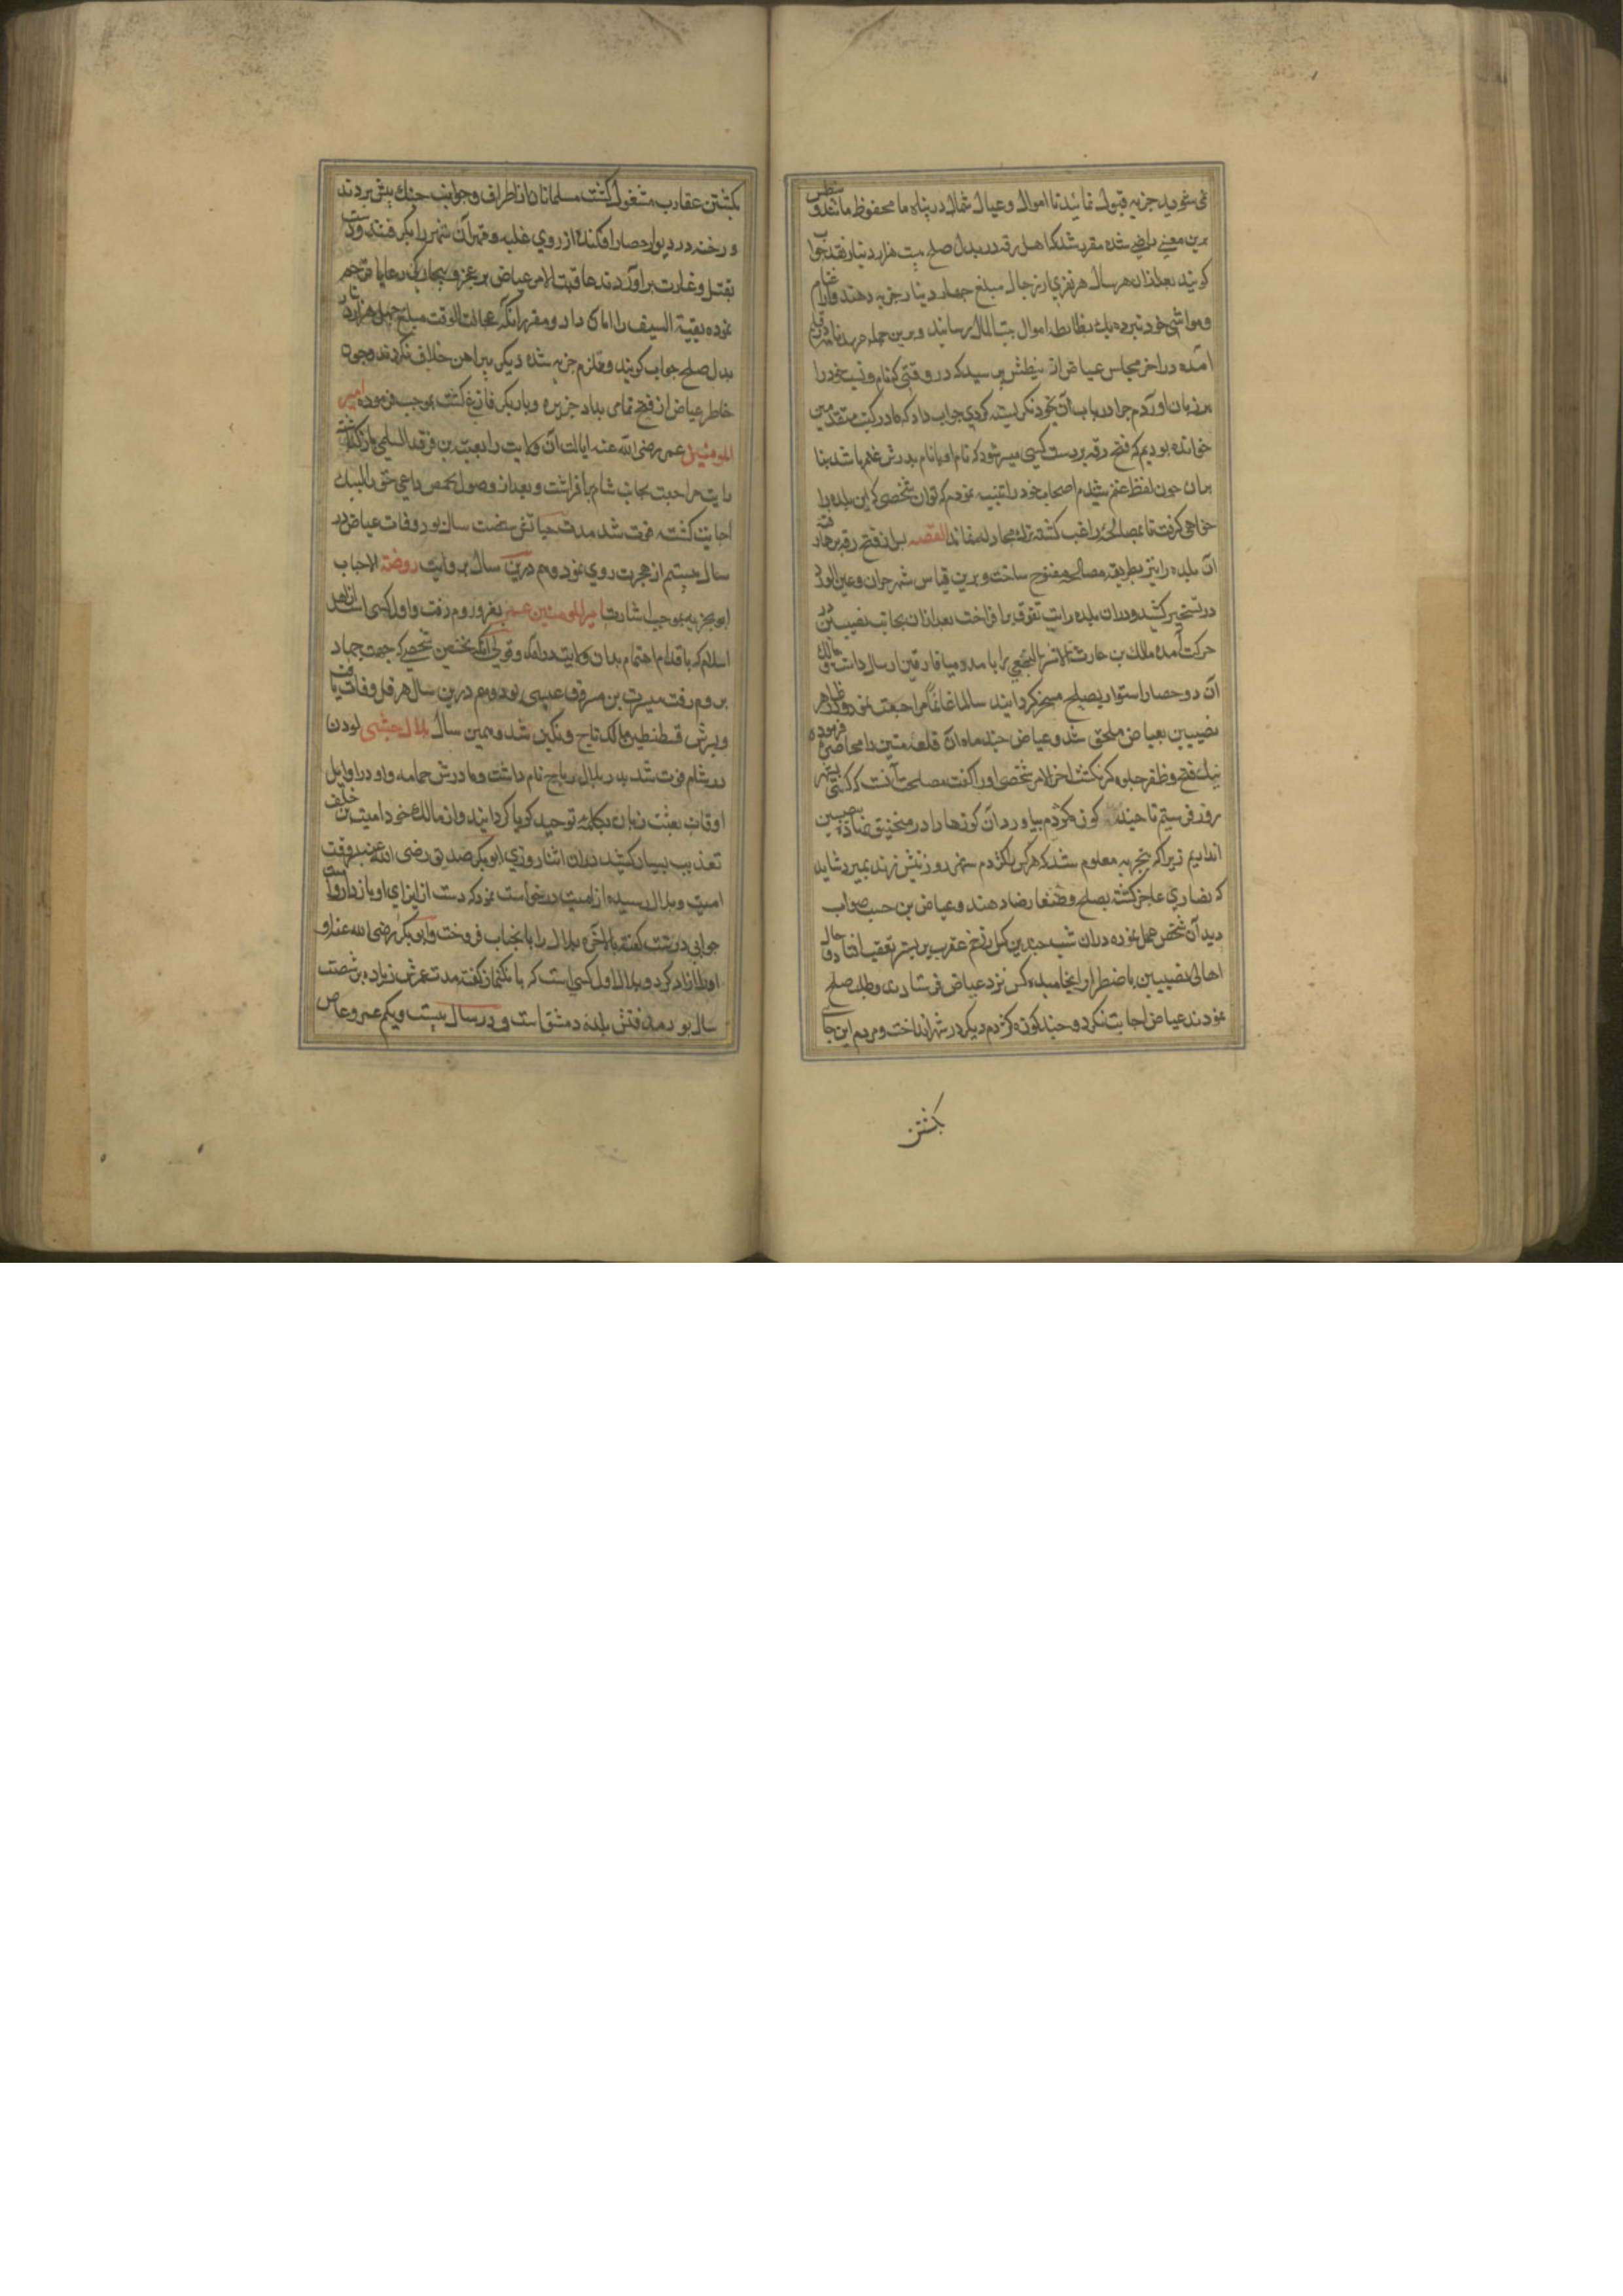 نمی شوید جزیه قبول نمائید تا اموال و عیال شما در پناه ما محفوظ ماند و بنطس
برین معنی راضی شده مقرر شد که اهل رقه در بدل صلح بیست هزار دینار نقد جواب
کویند بعد از ان هر سال هر نفری از رجال مبلغ چهار دینار جزیه دهند و اغنام
و مواشی خود شمرده بیت المال رسانند و برین جمله عهدنامه در قلم
آمده در اخر مجلس عیاض از بنطس پرسید که در وقتی که نام و نسب خود را
بر زبان اوردم چرا در باب آن بخود نگریسته کردی جواب داد که ما در کتب متقدمین
خوانده بودیم که فتح رقه بر دست کسی میسر شود که نام او یا نام پدرش غنم باشد بنا
بران چون لفظ غنم شنیدم اصحاب خود را تنبیه نمودم که توان شخصی که این بلده را
خواهی گرفت تا بمصالحه راغب کشته ترک مجادله نمایند القصه بعد از فتح رقه بر رها رفته
آن بلده را نیز بطریق مصالحه مفتوح ساخت و برین قیاس شهر حران و عین الورد
در تسخیر کشید و دران بلده رایت تفوق برافراخت بعد ازان بجانب نصیبین در
حرکت آمده مالک بن حارث الاشتر النخعی را بامد و میافارقین ارسال داشت و مالک
آن دو حصار استوار بصلح مسخر کردانیده سالما غانما مراجعت نمود و در ظاهر
نصیبین بعیاض ملحق شد و عیاض چند ماه آن قلعه متین را محاصره فرموده
نیک فتح و ظفر جلوه کر نکشت اخر الامر شخصی اورا گفت مصلحت آنست که کسی بشهر
روز فرستیم تا چند کوزه کژدم بیاورد و آن کوزها را در منجنیق نهاده به نصیبین
اندازیم زیرا که بتجربه معلوم شده که هر کس را کژدم شهر روز نیش زند بمیرد شاید
که نصاری عاجز کشته بصلح و صفا رضا دهند و عیاض بن حسب صواب
دید آن شخص عمل نموده دران شب چندین کس از زخم عقرب بر بستر تعب افتادند و حال
اهالی نصیبین باضطرار انجامیده کس نزد عیاض فرستادند و طلب صلح
نمودند عیاض اجابت نکرد و چند کوزه کژدم دیگر در شهر انداخت و مردم این جا
بکشتن
بکشتن عقارب مشغول کشت مسلمانان از اطراف و جوانب جنک پیش بردند
و رخنه در دیوار حصار افکنده از روی غلبه و قهر آن شهر را بکرفتند و دست
بقتل و غارت برآوردند عاقبت الامر عیاض بر عجز و بیچارکی رعایا ترحم
نموده بقیة السیف را امان داد و مقرر انکه عجالت الوقت مبلغ چهل هزار دینار
بدل صلح جواب کویند و ملتزم جزیه شده دیگر پیرامن خلاف نکردند و چون
خاطر عیاض از فتح تمامی بلاد جزیره و دیار بکر فارغ کشت بموجب فرموده امیر
المومنین عمر رضی الله عنه ایالت آن ولایت را بعتبه بن فرقد السلمی بازکذاشته
رایت مراجعت بجانب شام برافراشت و بعد از وصول بحمص داعی حق را لبیک
اجابت کفته فوت شد مدت حیاتش شصت سال بود وفات عیاض در
سال بیستم از هجرت روی نمود و هم درین سال بروایت روضة الاحباب
ابو بحریه بموجب اشارت امیرالمومنین عمر بغزو روم رفت و اول کسی است از اهل
اسلام که باقدام اهتمام بدان ولایت درآمد و قولی آنکه نخستین شخصی که جهت جهاد
بروم رفت میسرة بن مسروق عبسی بود و هم درین سال هرقل وفات یافت
و پسرش قسطنطین مالک تاج و نکین شد و همین سال بلال حبشی موذن
در شام فوت شد پدر بلال رباح نام داشت و مادرش حمامه و او در اوایل
اوقات بعثت زبان بکلمه توحید کویا کردانید و از مالک خود امیه بن خلف
تعذیب بسیار کشید دران اثنا روزی ابوبکر صدیق رضی الله عنه بر وقت
امیه و بلال رسیده از امیه درخواست نمود که دست از ایذای او بازدارد امیه
جوابی درشت کفته بالاخره بلال را بانجناب فروخت و ابوبکر رضی الله عنه او
اورا ازاد کرد و بلال اول کسی است که بانک نماز کفته مدت عمرش زیاده بر شصت
سال بود مدفنش بلده دمشق است و در سال بیست و یکم عمرو عاص